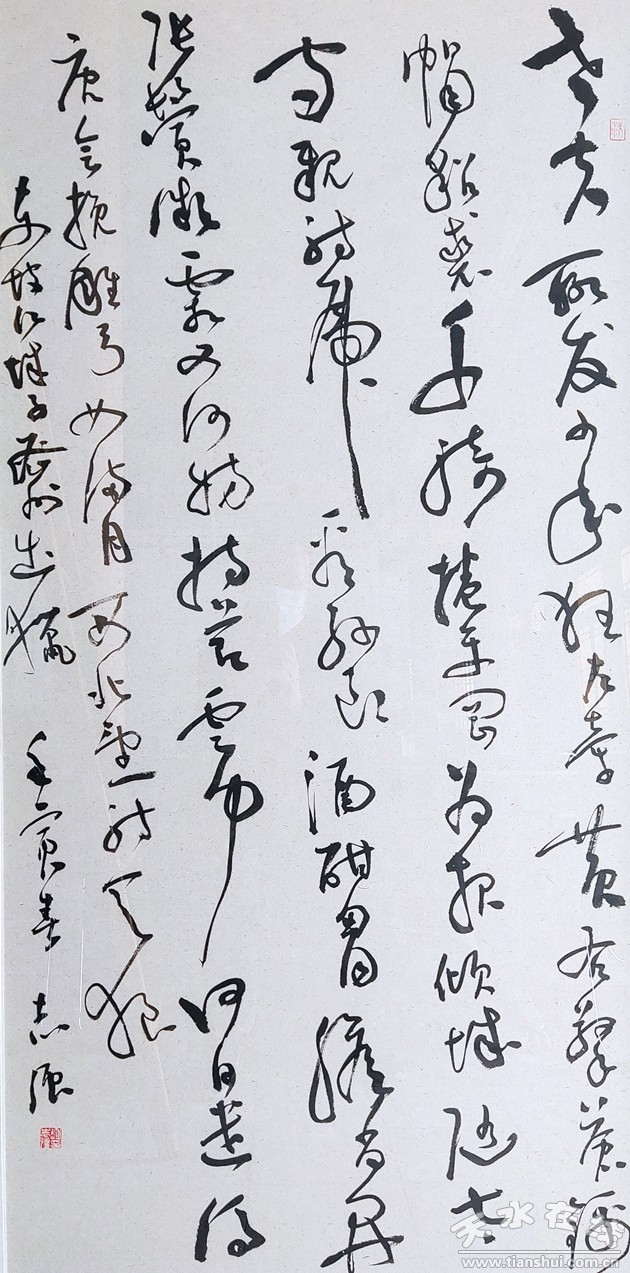 老夫聊发少年狂左牵黄右擎苍锦
帽貂裘千骑捲平冈为报倾城随太
守亲射虎看孙郎酒酣胷膽尚开
张鬓微霜又何妨持节云中何日遣冯
唐会挽雕弓如满月西北望射天狼
东坡江城子密州出猎 壬寅春 志强
天水在线
www.tianshui.com.cn